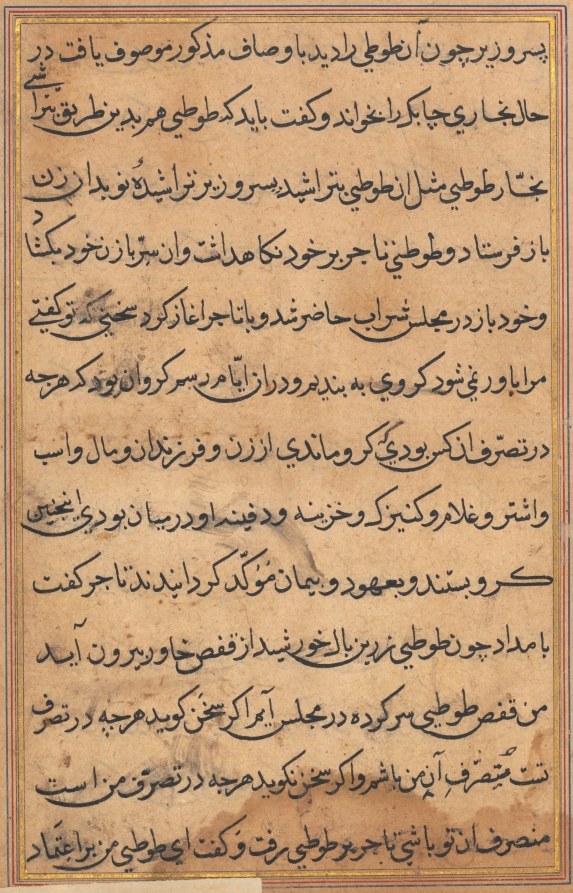 پسر وزیر چون آن طوطی را دید باوصاف مذکور موصوف یافت در
حال نجاری چابک را بخواند و کفت باید که طوطیی هم بدین طریق بتراشی
نجّار طوطیی مثل ان طوطیی بتراشید پسر وزیر تراشیدهٔ نو بدان زن
باز فرستاد و طوطیی تاجر بر خود نکاهداشت وان سرّ با زن خود بکشاد
و خود باز در مجلس شراب حاضر شد و با تاجر اغاز کرد سخنی که تو کفتی
مرا باور نمی شود کروی به بندیم و در ان ایّام رسم کرو ان بود که هرجه
در تصرّف ان کس بودی کرو ماندی از زن و فرزندان و مال واسب
واشتر و غلام و کنیزک و خزینه و دفینه او در میان بودی اینجنین
کرو بستند و بعهود و پیمان مُؤکّد کردانیدند تاجر کفت
بامداد چون طوطیی زرین بال خورشید از قفص خاور بیرون آید
من قفص طوطیی سر کرده در مجلس آیم اکر سخن کوید هرچه در تصرف
تست مُتصرّف آن من باشم و اکر سخن نکوید هرجه در تصرّف من است
متصرف ان تو باشی تاجر بر طوطیی رفت و کفت ای طوطیی من بر اعتماد